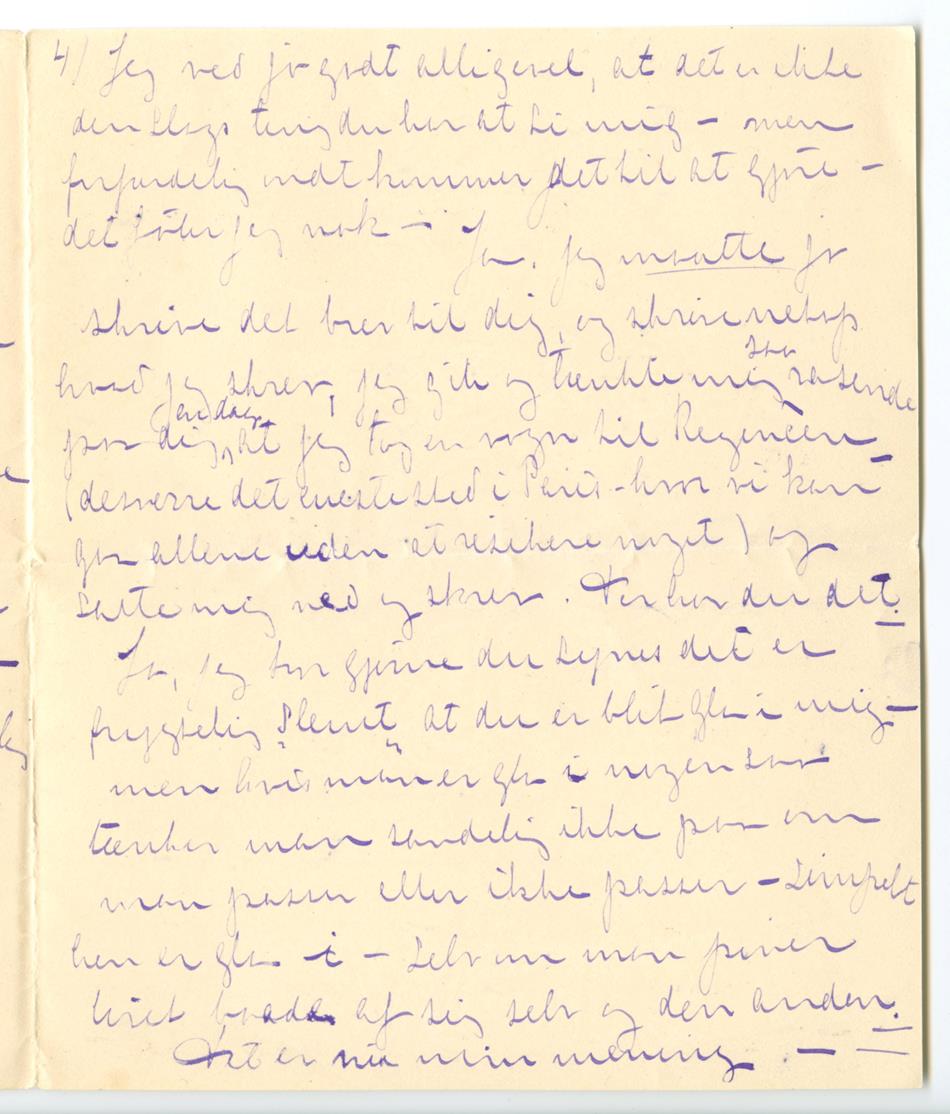 4) Jeg ved jo godt alligevel, at det er ikke
den slags ting du har at si mig – men
forfærdelig ondt kommer det til at gjøre –
det føler jeg nok – Ja, jeg maatte jo
skrive det brev til dig, og skrive netop
hvad jeg skrev, jeg gik og tænkte mig saa rasende
paa dig, en dag, at jeg tog en vogn til Regencen
(desverre det eneste sted i Paris – hvor vi kan
gaa allene uden at resikere noget) og
satte mig ned og skrev. Der har du det.
Ja, jeg tror gjerne du synes det er
frygtelig "slemt" at du er blit gla i mig –
men hvis man er gla i nogen saa
tænker man sandelig ikke paa om
man passer eller ikke passer – simpelt
hen er gla i – selv om man piner
livet baade af sig selv og den anden.
Det er nu min mening. –